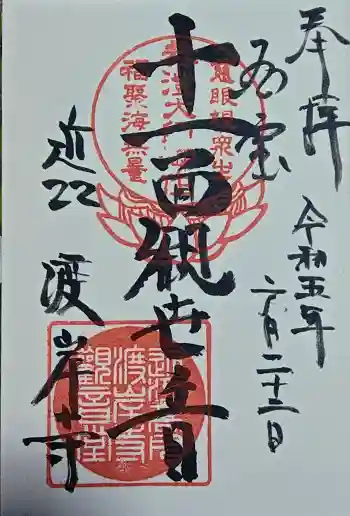 奉拝
令和五年
六月二十三日
国宝
十一面観世音
近江
渡岸寺
慈眼視衆生
福聚海無量
渡岸寺
観音堂